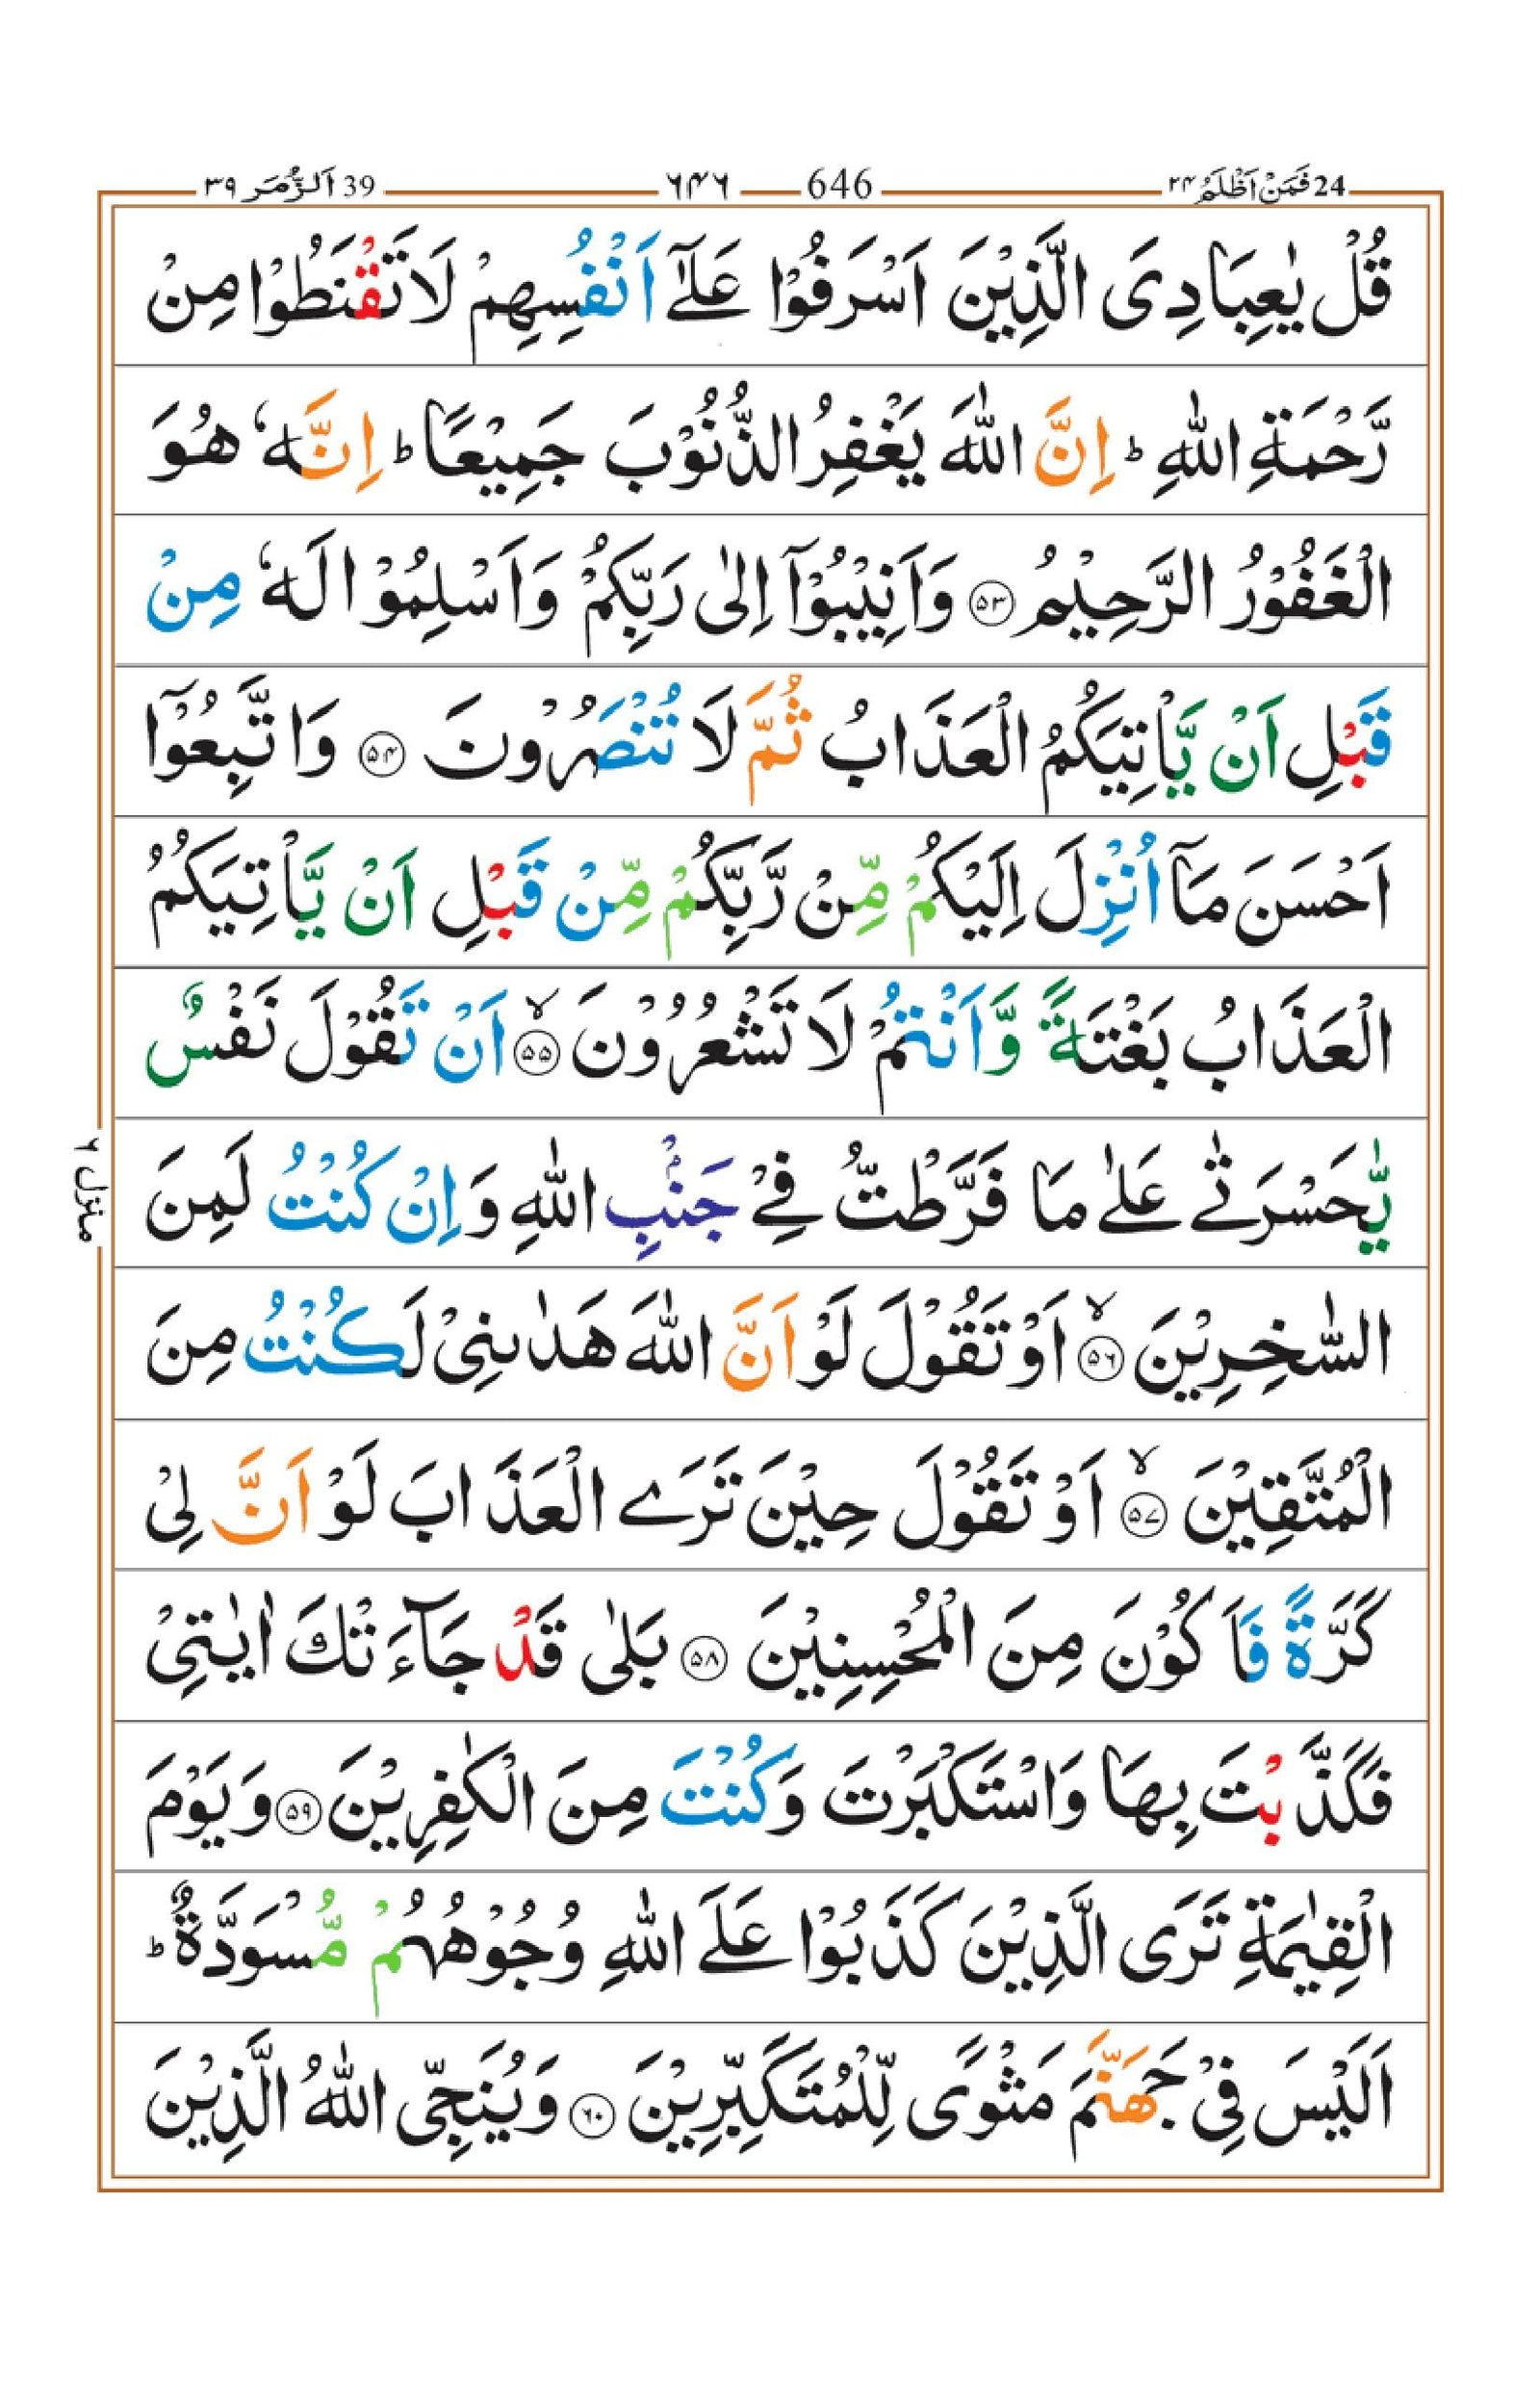 24 فَمَنْ اَظْلَمُ ۲۴
646 ۶۴۶
39 اَلزُّمَر ۳۹
قُلْ يٰعِبَادِىَ الَّذِيْنَ اَسْرَفُوْا عَلٰٓى اَنْفُسِهِمْ لَا تَقْنَطُوْا مِنْ
رَّحْمَةِ اللّٰهِ ؕ اِنَّ اللّٰهَ يَغْفِرُ الذُّنُوْبَ جَمِيْعًا ؕ اِنَّهٗ هُوَ
الْغَفُوْرُ الرَّحِيْمُ ۝۵۳ وَاَنِيْبُوْٓا اِلٰى رَبِّكُمْ وَاَسْلِمُوْا لَهٗ مِنْ
قَبْلِ اَنْ يَّاْتِيَكُمُ الْعَذَابُ ثُمَّ لَا تُنْصَرُوْنَ ۝۵۴ وَاتَّبِعُوْٓا
اَحْسَنَ مَآ اُنْزِلَ اِلَيْكُمْ مِّنْ رَّبِّكُمْ مِّنْ قَبْلِ اَنْ يَّاْتِيَكُمُ
الْعَذَابُ بَغْتَةً وَّاَنْتُمْ لَا تَشْعُرُوْنَ ۝۵۵ۙ اَنْ تَقُوْلَ نَفْسٌ
يّٰحَسْرَتٰى عَلٰى مَا فَرَّطْتُّ فِىْ جَنْۢبِ اللّٰهِ وَاِنْ كُنْتُ لَمِنَ
السّٰخِرِيْنَ ۝۵۶ۙ اَوْ تَقُوْلَ لَوْ اَنَّ اللّٰهَ هَدٰىنِىْ لَكُنْتُ مِنَ
الْمُتَّقِيْنَ ۝۵۷ۙ اَوْ تَقُوْلَ حِيْنَ تَرَى الْعَذَابَ لَوْ اَنَّ لِىْ
كَرَّةً فَاَكُوْنَ مِنَ الْمُحْسِنِيْنَ ۝۵۸ بَلٰى قَدْ جَآءَتْكَ اٰيٰتِىْ
فَكَذَّبْتَ بِهَا وَاسْتَكْبَرْتَ وَكُنْتَ مِنَ الْكٰفِرِيْنَ ۝۵۹ وَيَوْمَ
الْقِيٰمَةِ تَرَى الَّذِيْنَ كَذَبُوْا عَلَى اللّٰهِ وُجُوْهُهُمْ مُّسْوَدَّةٌ ؕ
اَلَيْسَ فِىْ جَهَنَّمَ مَثْوًى لِّلْمُتَكَبِّرِيْنَ ۝۶۰ وَيُنَجِّى اللّٰهُ الَّذِيْنَ
منزل ۶